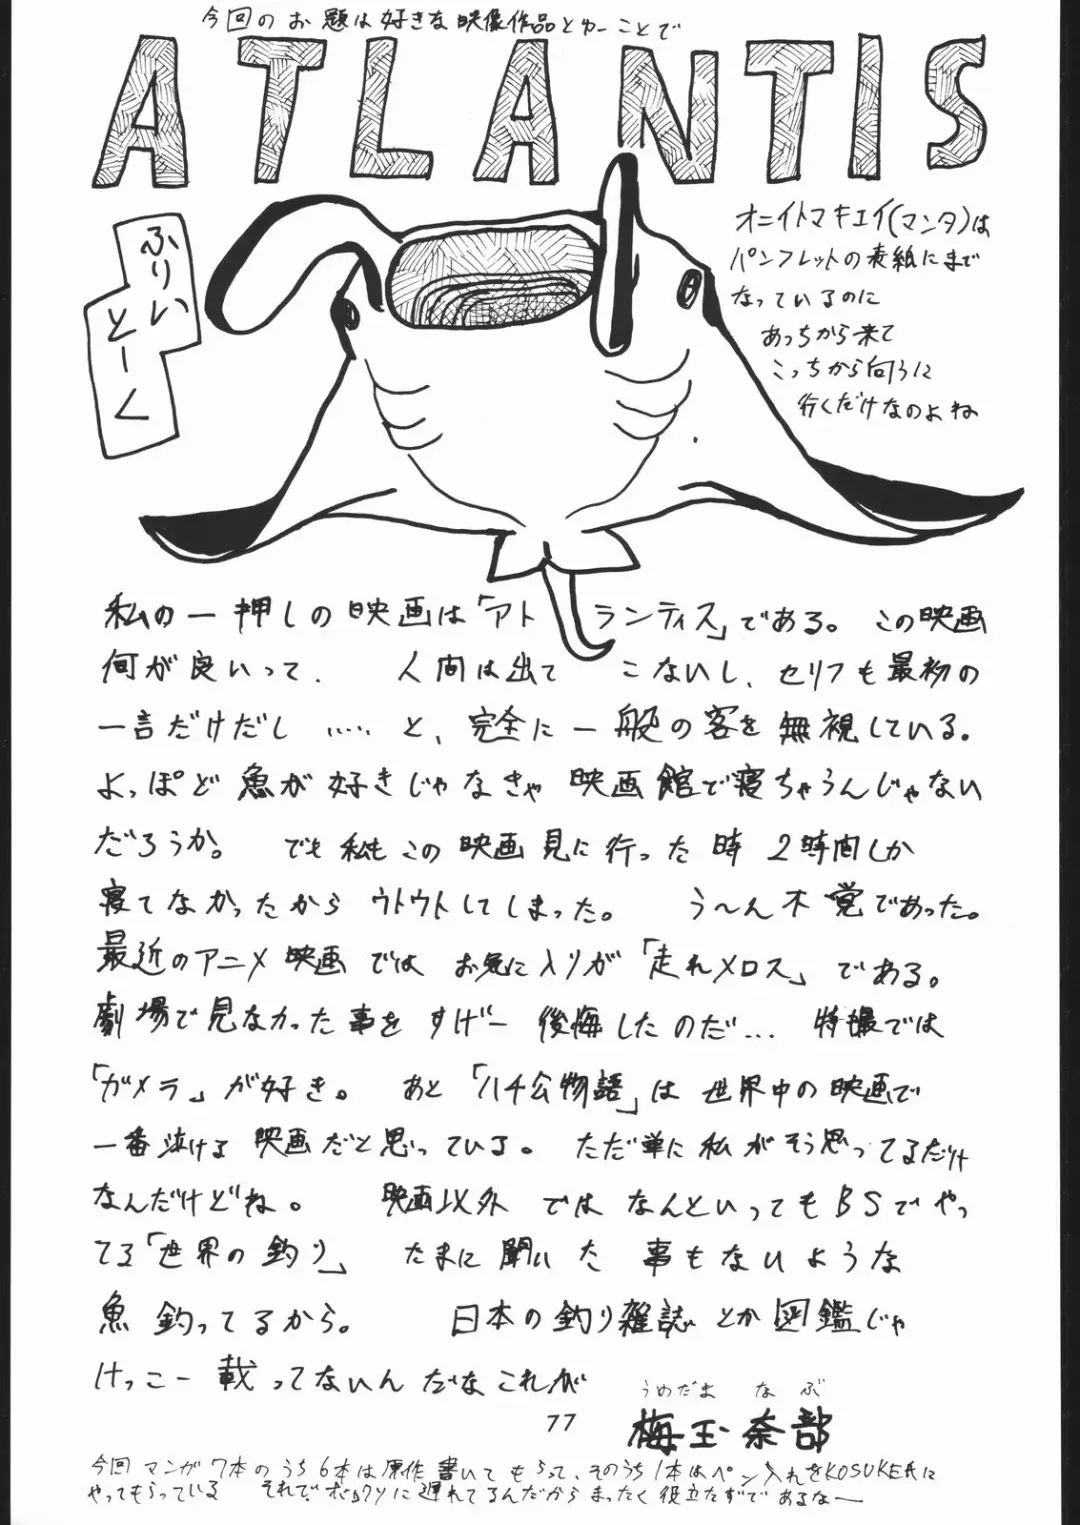 今回のお題は好きな映像作品とゆーことで
ATLANTIS
ふりい
とーく
オニイトマキエイ(マンタ)は
パンフレットの表紙にまで
なっているのに
あっちから来て
こっちから向うに
行くだけなのよね
私の一押しの映画は「アトランティス」である。この映画
何が良いって、人間は出てこないし、セリフも最初の
一言だけだし……と、完全に一般の客を無視している。
よっぽど魚が好きじゃなきゃ映画館で寝ちゃうんじゃない
だろうか。でも私もこの映画見に行った時2時間しか
寝てなかったからウトウトしてしまった。う〜ん不覚であった。
最近のアニメ映画ではお気に入りが「走れメロス」である。
劇場で見なかった事をすげー後悔したのだ… 特撮では
「ガメラ」が好き。あと「ハチ公物語」は世界中の映画で
一番泣ける映画だと思っている。ただ単に私がそう思ってるだけ
なんだけどね。映画以外ではなんといってもBSでやっ
てる「世界の釣り」たまに聞いた事もないような
魚釣ってるから。日本の釣り雑誌とか図鑑じゃ
けっこー載ってないんだなこれが
77
うめだま なぶ
梅玉奈部
今回マンガ7本のうち6本は原作書いてもらって、そのうち1本はペン入れをKOSUKE氏に
やってもらっている それで、ボクリに遅れてるんだからまったく役立たずであるなー